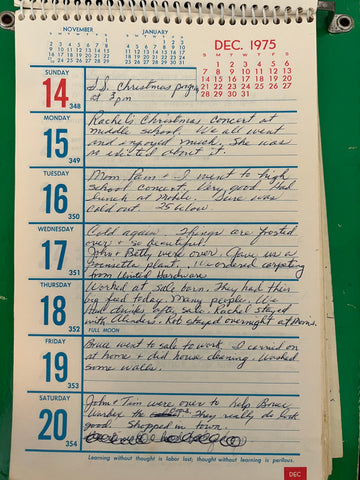 NOVEMBER
S M T W T F S
1
2 3 4 5 6 7 8
9 10 11 12 13 14 15
16 17 18 19 20 21 22
23 24 25 26 27 28 29
30
JANUARY
S M T W T F S
1 2 3
4 5 6 7 8 9 10
11 12 13 14 15 16 17
18 19 20 21 22 23 24
25 26 27 28 29 30 31
DEC. 1975
S M T W T F S
1 2 3 4 5 6
7 8 9 10 11 12 13
14 15 16 17 18 19 20
21 22 23 24 25 26 27
28 29 30 31
SUNDAY
14 348
S.S. Christmas
at 7 pm
MONDAY
15 349
Rachel's Christmas concert at
middle school. We all went
and enjoyed much. She was
so excited about it.
TUESDAY
16 350
Mom, Pam + I went to high
school concert. Very good. Had
lunch at Mobile. Sure was
cold out. 25 below
WEDNESDAY
17 351
Cold again. Things are frosted
over + so beautiful!
John + Betty were over. Gave us a
plant. I ordered carpeting
from United Hardware
THURSDAY
18 352
FULL MOON
Worked at Sale barn. They had their
big feed today. Many people. We
had drinks after sale. Rachel stayed
with . Rob stayed overnight at Mom's.
FRIDAY
19 353
Bruce went to sale to work. I carried on
at home + did house cleaning. Washed
some walls.
SATURDAY
20 354
John + Tim were over to help Bruce
the . They really do look
good. Shopped in town.
Learning without thought is labor lost; thought without learning is perilous.
DEC